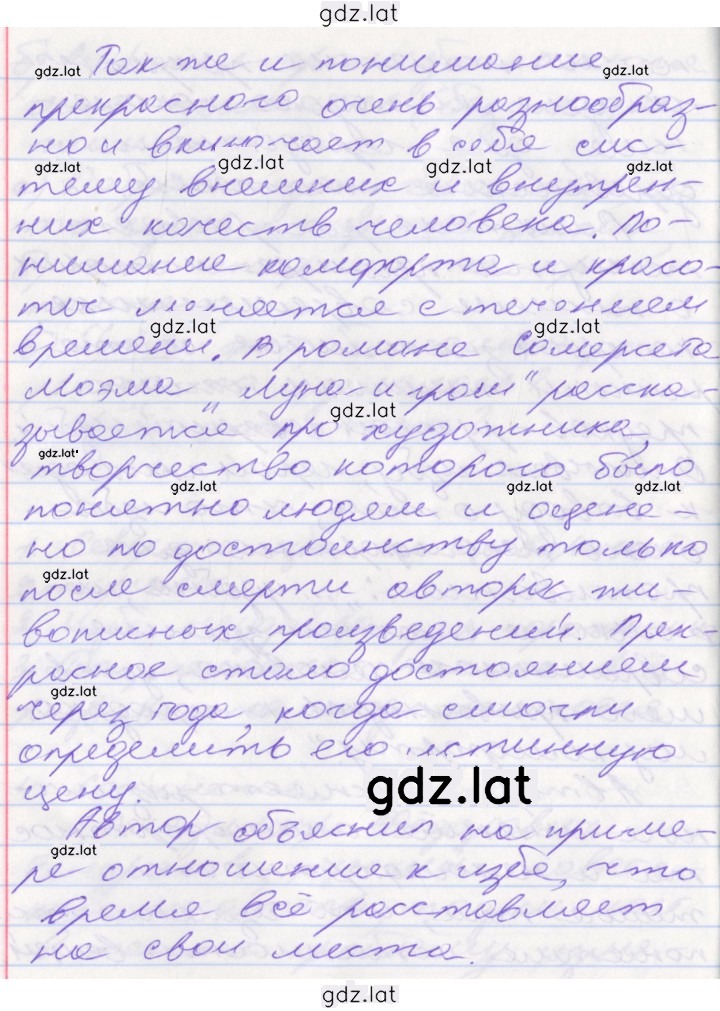 gdz.lat
Так же и понимание
gdz.lat gdz.lat
прекрасного очень разнообраз-
но и включает в себя сис-
gdz.lat gdz.lat gdz.lat gdz.lat
тему внешних и внутрен-
них качеств человека. По-
нимание комфорта и красо-
ты меняется с течением
gdz.lat gdz.lat
времени. В романе Сомерсета
Моэма „Луна и грош" расска-
gdz.lat
зывается про художника,
gdz.lat
творчество которого было
gdz.lat gdz.lat gdz.lat
понятно людям и оцене-
но по достоинству только
gdz.lat
после смерти автора жи-
вописных произведений. Прек-
расное стало достоянием
gdz.lat
через года, когда смогли
определить его истинную
цену.
gdz.lat
Автор объяснил на приме-
gdz.lat
ре отношения к избе, что
время всё расставляет
на свои места.
gdz.lat